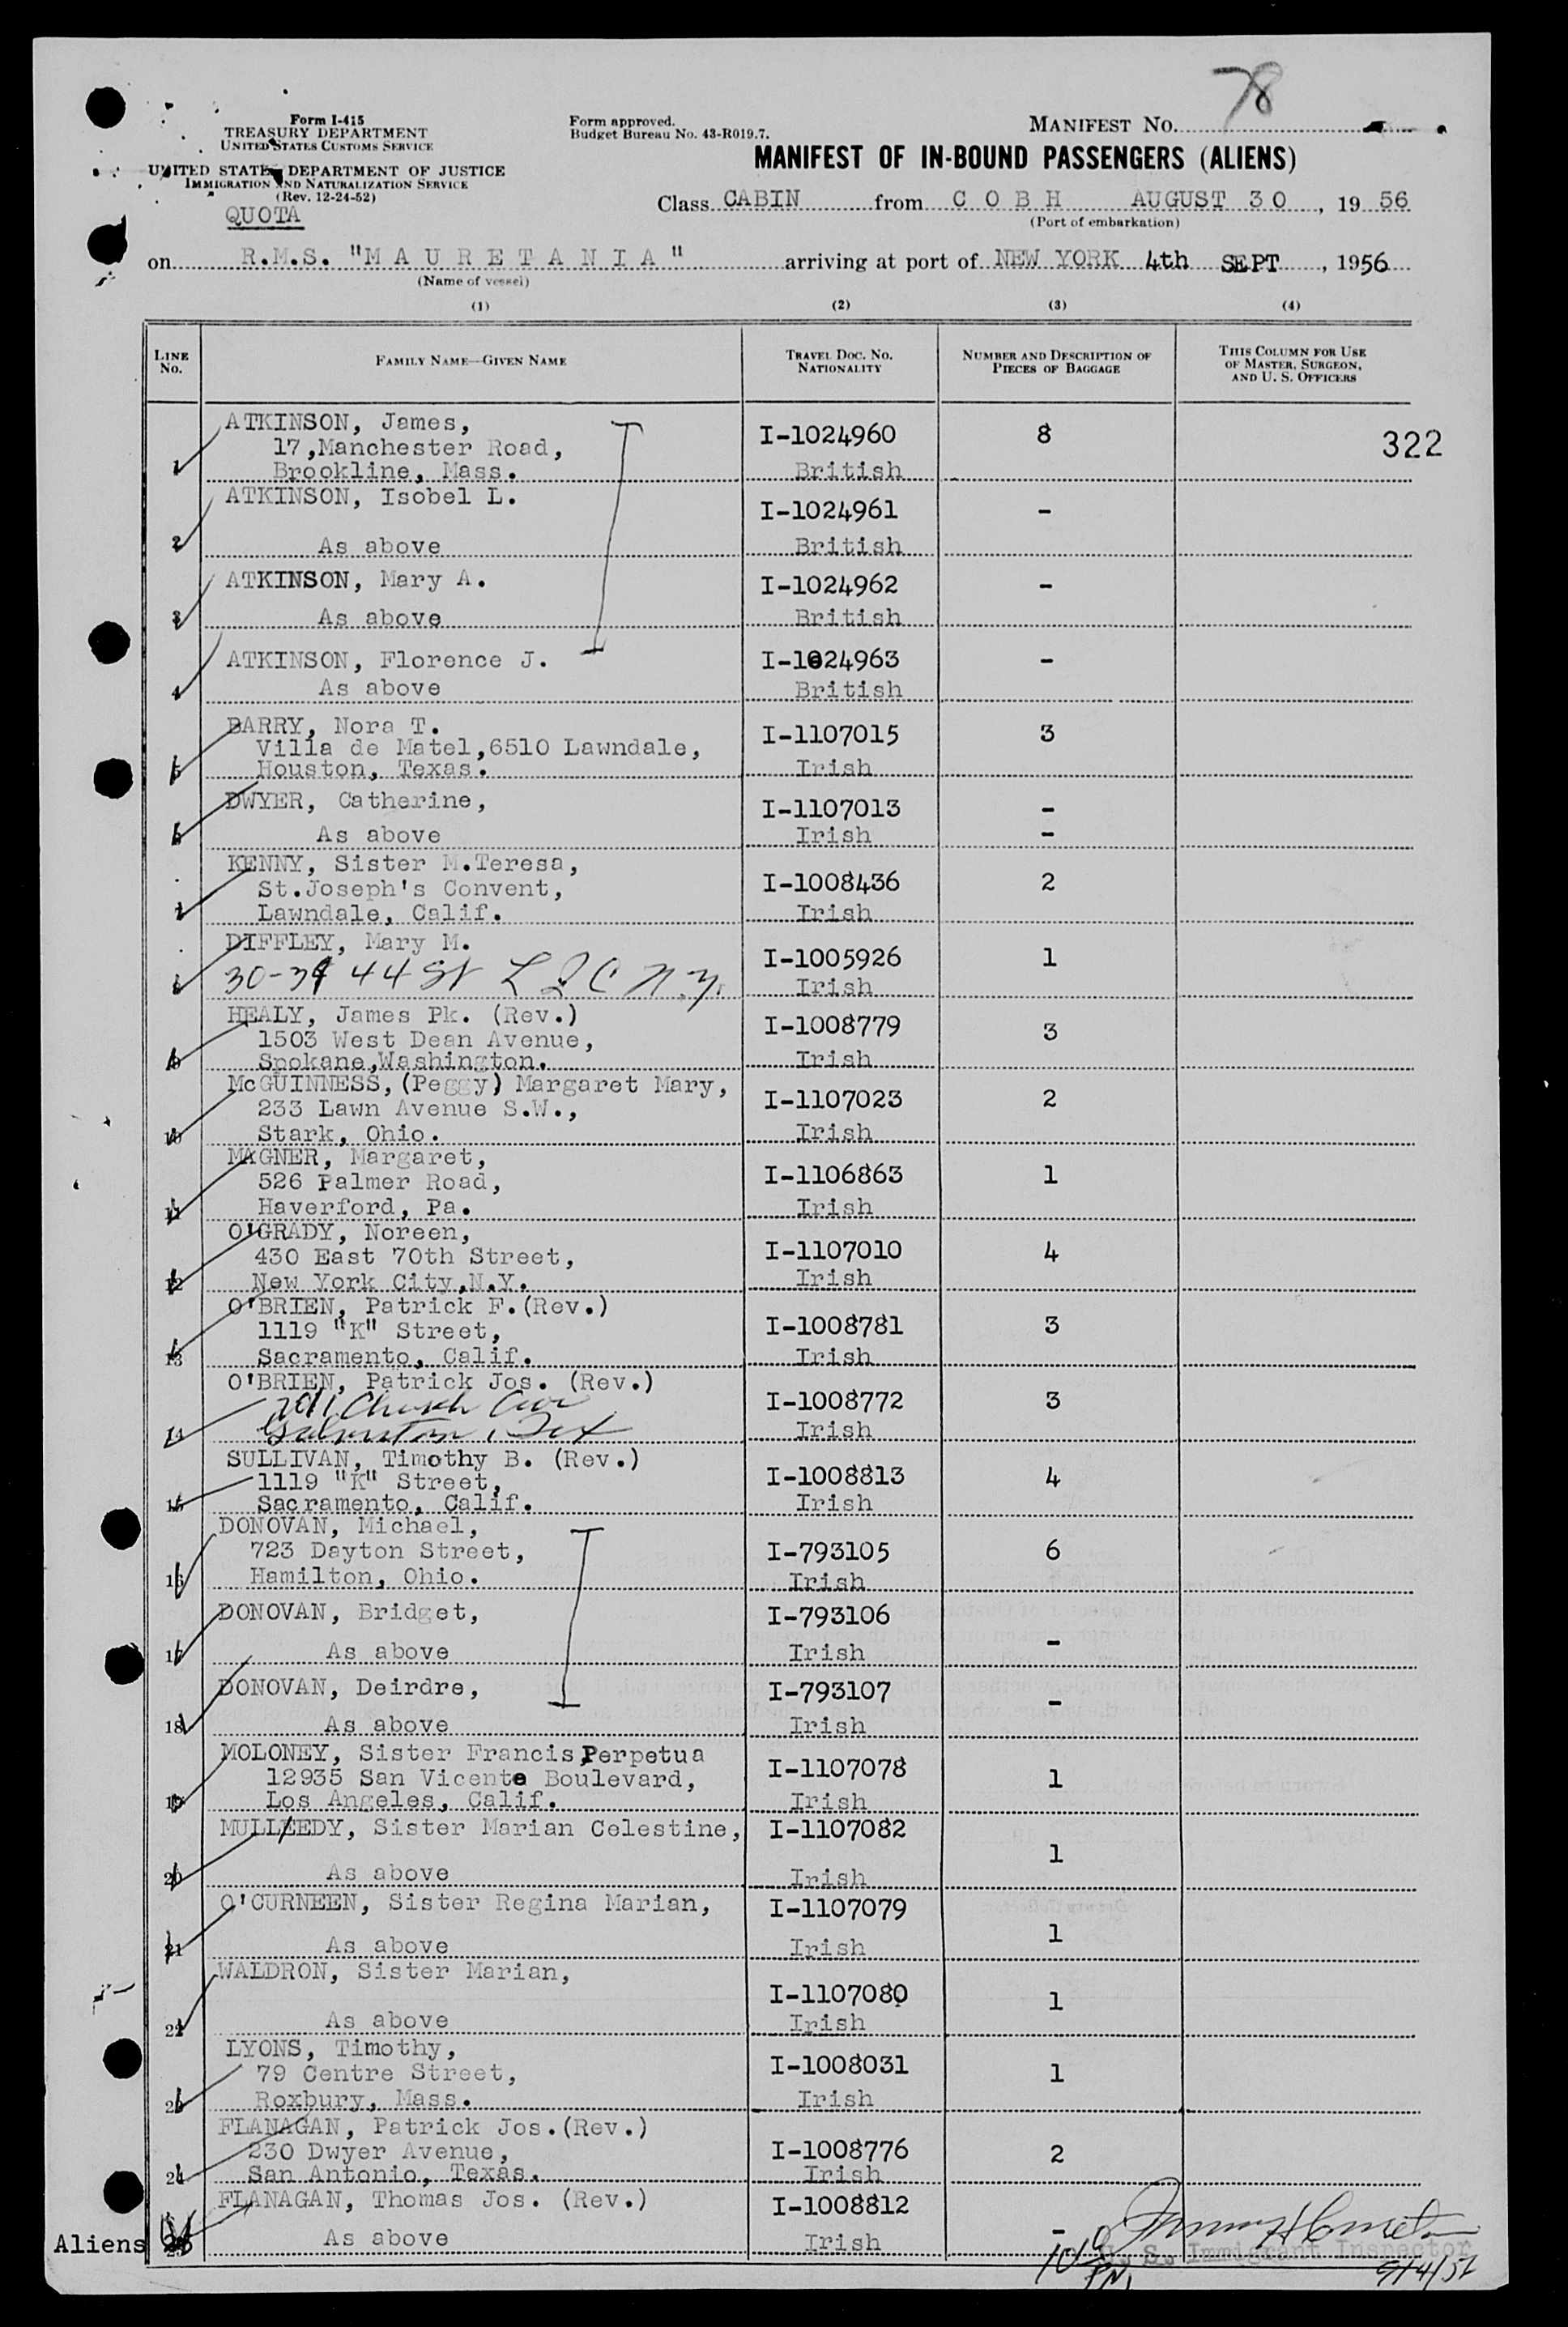 78
Form I-415
TREASURY DEPARTMENT
UNITED STATES CUSTOMS SERVICE
UNITED STATES DEPARTMENT OF JUSTICE
IMMIGRATION AND NATURALIZATION SERVICE
(Rev. 12-24-52)
QUOTA
Form approved.
Budget Bureau No. 43-R019.7.
MANIFEST NO.
MANIFEST OF IN-BOUND PASSENGERS (ALIENS)
Class CABIN from C O B H AUGUST 30, 1956
(Port of embarkation)
on R.M.S. "M A U R E T A N I A" arriving at port of NEW YORK 4th SEPT, 1956
(Name of vessel)
(1) (2) (3) (4)
LINE NO. FAMILY NAME—GIVEN NAME TRAVEL DOC. NO. NATIONALITY NUMBER AND DESCRIPTION OF PIECES OF BAGGAGE THIS COLUMN FOR USE OF MASTER, SURGEON, AND U. S. OFFICERS
ATKINSON, James,
17,Manchester Road, I-1024960 8 322
1 Brookline, Mass. British
ATKINSON, Isobel L. I-1024961 -
2 As above British
ATKINSON, Mary A. I-1024962 -
3 As above British
ATKINSON, Florence J. I-1024963 -
4 As above British
BARRY, Nora T. I-1107015 3
Villa de Matel,6510 Lawndale,
5 Houston, Texas. Irish
DWYER, Catherine, I-1107013 -
6 As above Irish -
KENNY, Sister M.Teresa,
St.Joseph's Convent, I-1008436 2
7 Lawndale, Calif. Irish
DIFFLEY, Mary M. I-1005926 1
8 30-39 44 St L I C N.Y. Irish
HEALY, James Pk. (Rev.) I-1008779 3
1503 West Dean Avenue,
9 Spokane,Washington. Irish
McGUINNESS,(Peggy) Margaret Mary, I-1107023 2
233 Lawn Avenue S.W.,
10 Stark, Ohio. Irish
MAGNER, Margaret, I-1106863 1
526 Palmer Road,
11 Haverford, Pa. Irish
O'GRADY, Noreen,
430 East 70th Street, I-1107010 4
12 New York City,N.Y. Irish
O'BRIEN, Patrick F.(Rev.)
1119 "K" Street, I-1008781 3
13 Sacramento, Calif. Irish
O'BRIEN, Patrick Jos. (Rev.)
2011 Church Ave I-1008772 3
14 Galveston, Tex Irish
SULLIVAN, Timothy B. (Rev.)
1119 "K" Street, I-1008813 4
15 Sacramento, Calif. Irish
DONOVAN, Michael,
723 Dayton Street, I-793105 6
16 Hamilton, Ohio. Irish
DONOVAN, Bridget, I-793106
17 As above Irish -
DONOVAN, Deirdre, I-793107 -
18 As above Irish
MOLONEY, Sister Francis Perpetua
12935 San Vicente Boulevard, I-1107078 1
19 Los Angeles, Calif. Irish
MULLEEDY, Sister Marian Celestine, I-1107082 1
20 As above Irish
O'CURNEEN, Sister Regina Marian, I-1107079 1
21 As above Irish
WALDRON, Sister Marian, I-1107080 1
22 As above Irish
LYONS, Timothy,
79 Centre Street, I-1008031 1
23 Roxbury, Mass. Irish
FLANAGAN, Patrick Jos.(Rev.)
230 Dwyer Avenue, I-1008776 2
24 San Antonio, Texas. Irish
FLANAGAN, Thomas Jos. (Rev.) I-1008812 -
Aliens 25 As above Irish
U. S. Immigrant Inspector
9/4/56